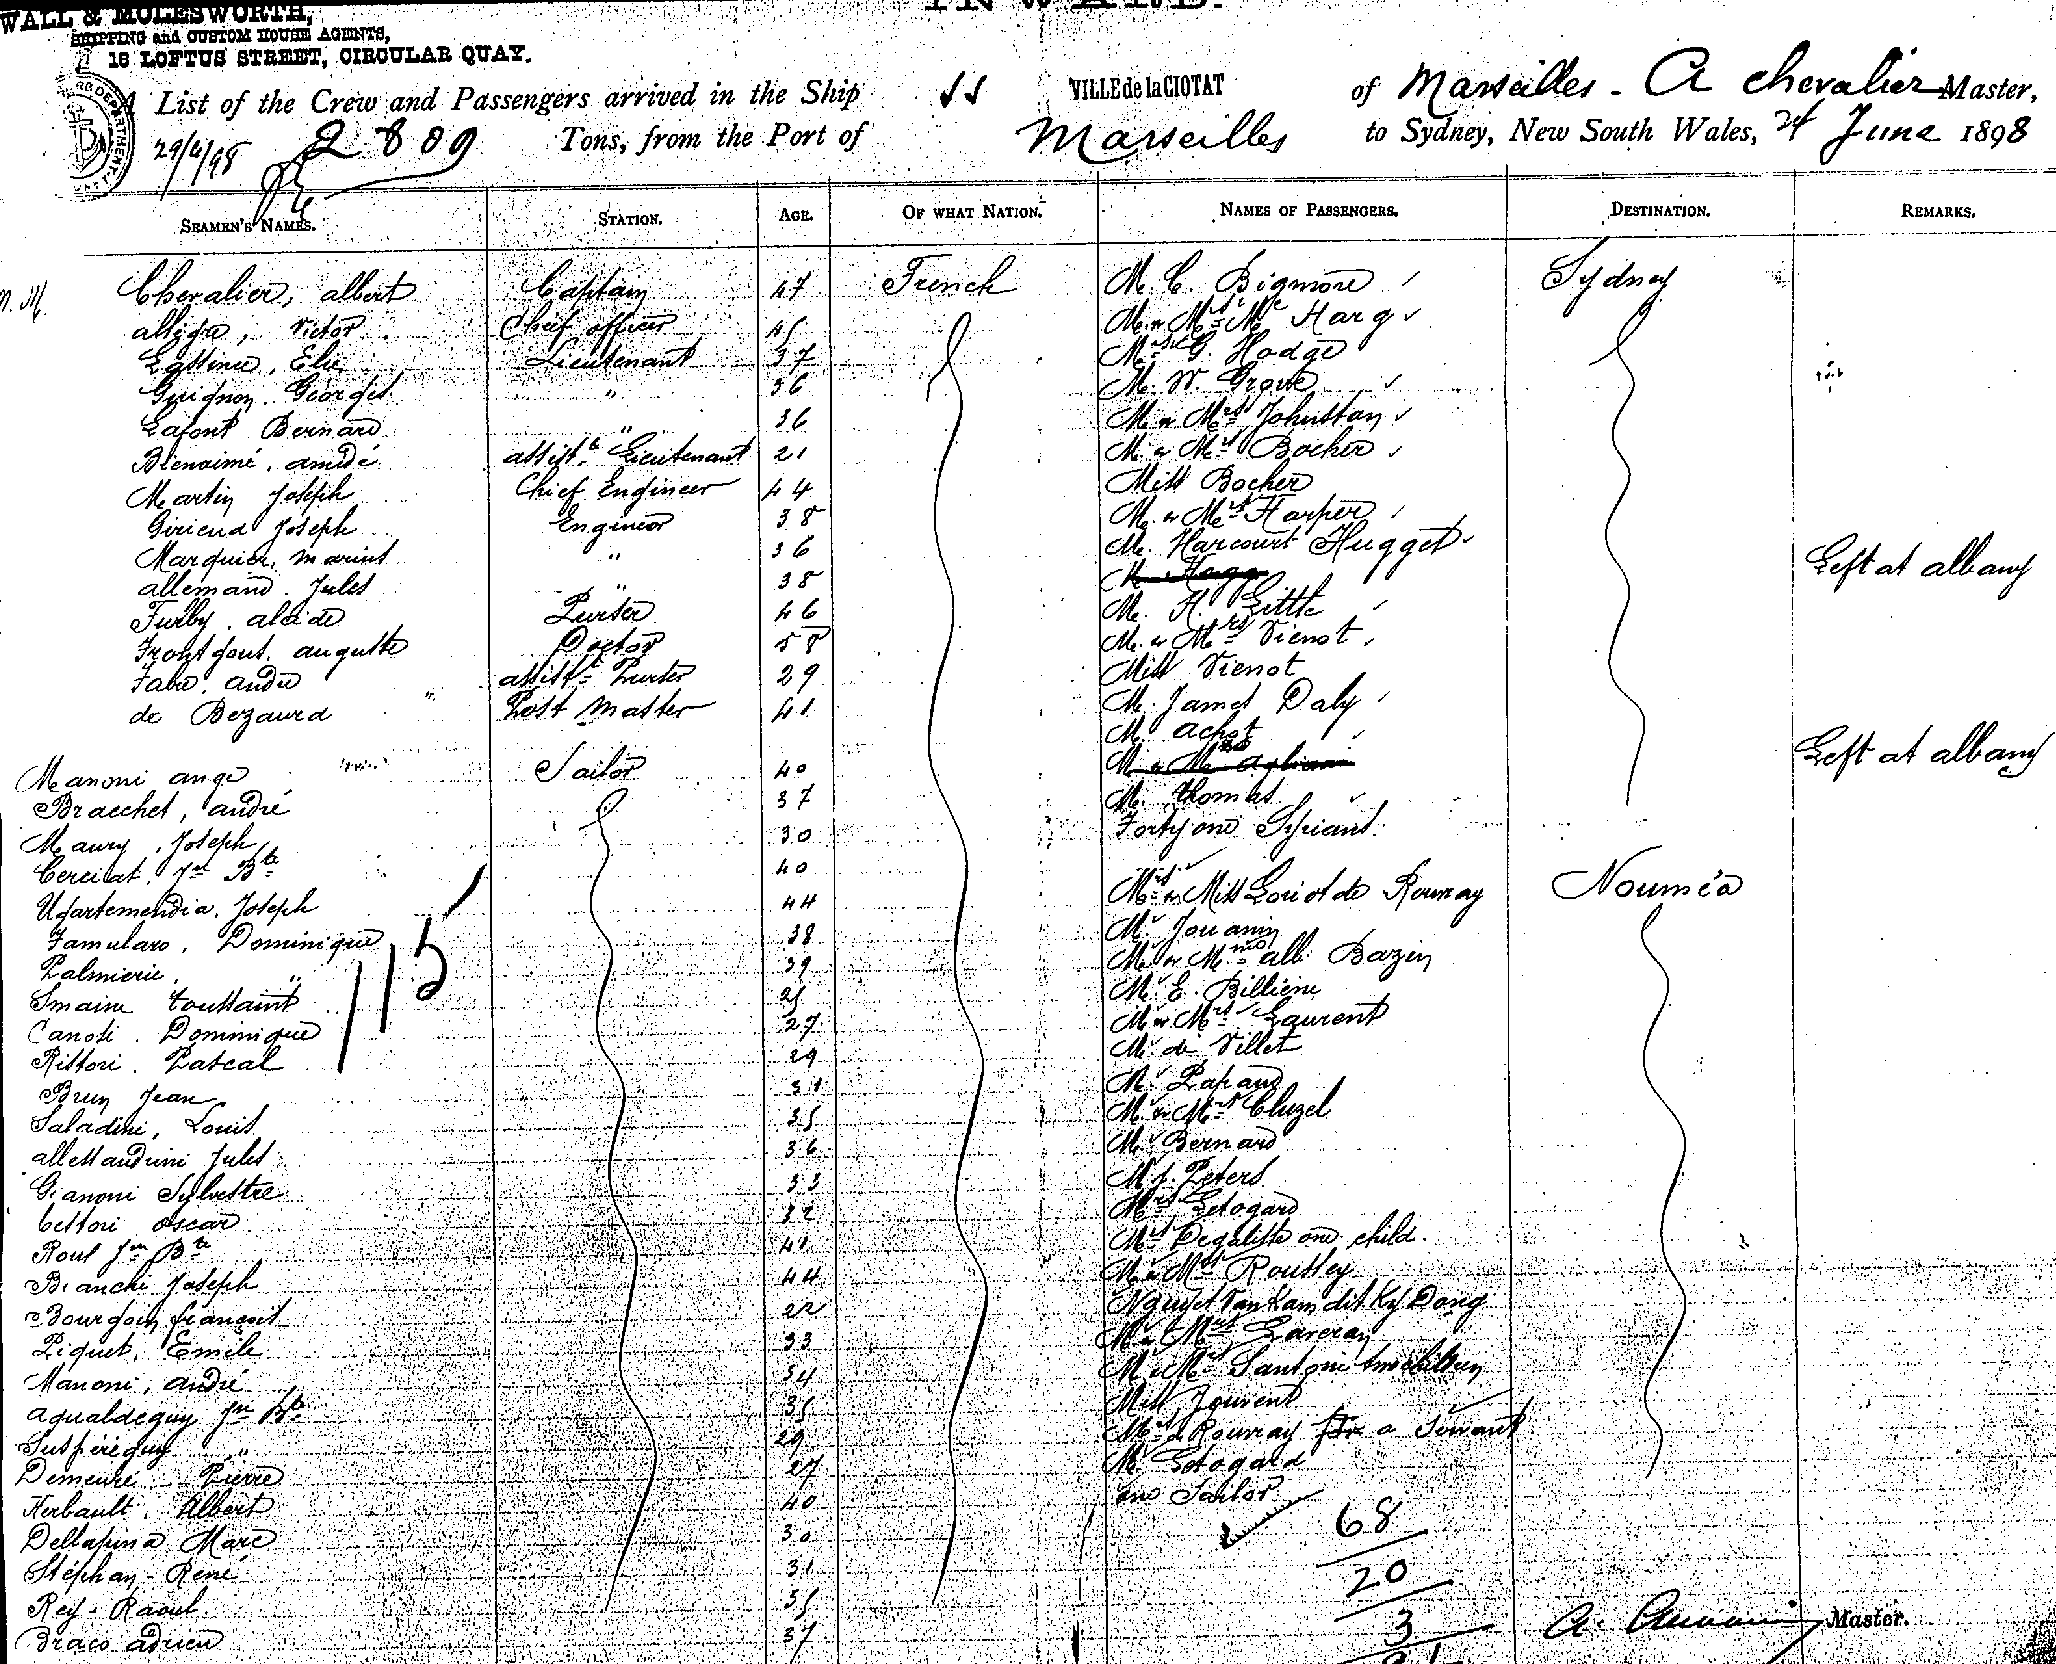 INWARD.
WALL & MOLESWORTH,
SHIPPING and CUSTOM HOUSE AGENTS,
18 LOFTUS STREET, CIRCULAR QUAY.
A List of the Crew and Passengers arrived in the Ship SS VILLE de la CIOTAT of Marseilles - A Chevalier Master,
29/6/98 2809 Tons, from the Port of Marseilles to Sydney, New South Wales, 24 June 1898
SEAMEN'S NAMES. STATION. AGE. OF WHAT NATION. NAMES OF PASSENGERS. DESTINATION. REMARKS.
M. M. Chevalier, albert Captain 47 French M. C. Bigmore Sydney
Victor Chief officer 45 Harg
Elie Lieutenant 37 G. Hodge
Guignon. Georges " 36 M. W. Grove
Lafont Bernard " 36 M & Mrs Johnston
Bienaimé. amédé assist.t Lieutenant 21 M & Mrs Bocher
Martin Joseph Chief Engineer 44 Miss Bocher
Giriend Joseph Engineer 38 M. & Mrs Harper
Marquier. marius " 36 M. Harcourt Hugget
allemand. Jules " 38 Left at albany
Furby. alcide Purser 46 M. H. Little
Frontgout. auguste Doctor 58 M. & Mrs Vienot
Fabre. andré assist.t Purser 29 Miss Vienot
de Bezaurd " Post Master 41 M. James Daly
M. achot
Manoni ange Sailor 40 Left at albany
Bracchet, andré 37 M. Thomas
Maury, Joseph 30 Forty one Syrians.
Jn Bte 40
Ugartemendia. Joseph 44 Mrs & Miss Loriot de Rouvray Nouméa
Famularo, Dominique 38 M. Jouanin
Palmierie. " 39 M & Mme alb. Bazin
Smaine toussaint 25 M. E. Billiene
Canoti. Dominique 27 M & Mrs Laurent
Ristori. Pascal 29 M. de Villet
115
Brun Jean 31 M. Papaud
Saladini, Louis 35 M & Mrs Cluzel
allessandrini Jules 36 M. Bernard
Gianoni Sylvestre 33 M J. Peters
oscar 32 Mrs Letogard
Roul Jn Bte 41 Mrs Degaliste one child.
Bianchi Joseph 44 M & Mrs Roustey
Bourgoin françois 22 Nguyet Van Kam dit Ky Dong
Piquet. Emile 33 M & Mrs Laveran
Manoni, andré 34 M & Mrs Santoni two children
agualdeguy Jn Bte 35 Miss Jouvent
Susperéguy " 29 Mrs de Rouvray a Servant
Demeure Pierre 27 M Letogard
Herbault. Albert 40 one Sailor
Dellapina Marc 30 68
Stéphan - René 31 20
Rey - Raoul 35 3
Draco adrien 37 Master.